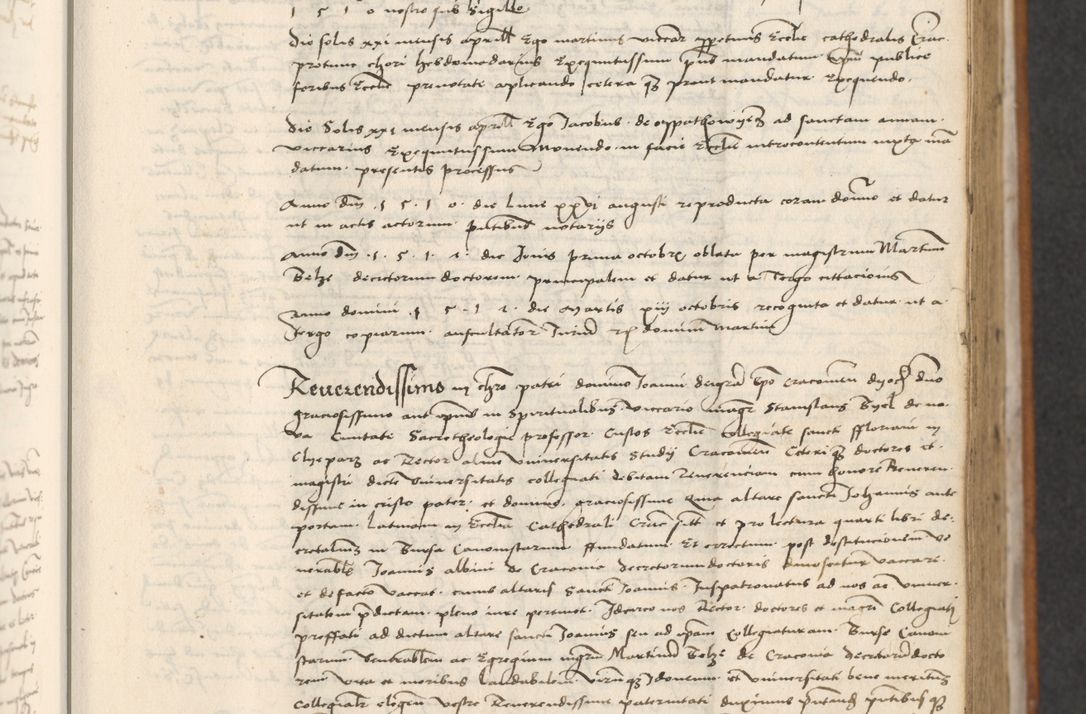 1 5 1 0 nostro sub Sigillo
Die solis xxi mensis aprill Ego martinus viccar ppetuus Ecclie cathedralis Crac
protunc chori hebdomodarius Exequutussum pns mandatum publice
foribus Ecclie prenotate aplicando cetera qz prout mandatur Exequendo.
Die Solis xxi mensis aprill Ego Jacobus de ad sanctam annam
viccarius Exequutussum Monendo in facie Ecclie introcontentum iuxta ma
datum presentis processus
Anno dni .1.5.1.0. die lune xxvi augusti reproducta coram domino et datur
ut in actis actorum notarijs
anno dni .1.5.1.1. die Jouis prima octobrz oblata per magistrum Martinum
Belze decretorum doctorem principalem et datur ut a Tergo cittacionis
anno domini .1 5 1 1. die Martis xiiij octobris recognita et datur ut a
tergo copiarum auscultator dominum Martinum
Reuerendissimo in chro patri domino Joanni deigra Epo Cracouien dno
graciosissimo aut in Spiritualibus viccario magr Stanislaus Byel de no
va Ciuitate Sacretheologie professor Custos Ecclie Collegiate sancti ffloriani in
Clyeparz ac Rector alme vniuersitatis Studij Cracouien Ceteri qz doctores et
magistri dicte vniuersitatis collegiati debitam Reuerenciam cum honore Reueren
dissime in cristo pater et domine graciosissime Quia altare sancti Johannis ante
portam latinam in Ecclia Cathedrali Crac et pro lectura quarti libri de:
cretalium in Bursa Canonistarum ffundatum Et erectum post destitucionem ve
nerabilis Joannis albini de Cracouia decretorumdoctoris dinoscatur vaccare
et defacto vaccat cuius altaris Sancti Joannis Juspatronatus ad nos ac vniuer
sitatem pdictam pleno iure pertinet Idcirco nos Rector doctores et magri Collegiati
preffati ad dictum altare sancti Joannis seu ad ipsam Collegiaturam Burse Canon
starum venerabilem ac Egregium mgrum Martinum Belze de Cracouia decretorumdocto
rem vita et moribus laudabilem virum qz Idoneum et vniuersitati bene meritum
Collegialr elegem vestre Reuerendissime paternitati duximus putand putibus qz